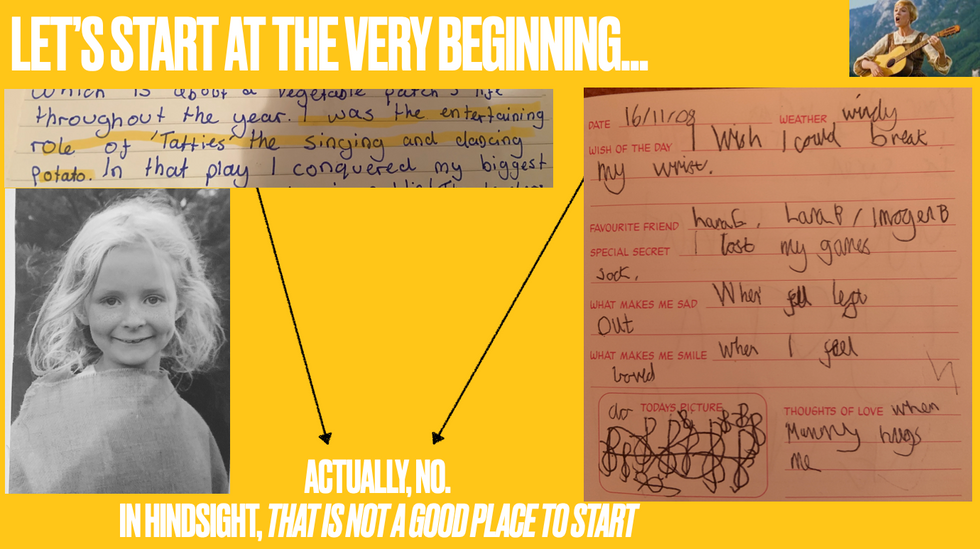 LET'S START AT THE VERY BEGINNING...
which is about a vegetable patch's life
throughout the year. I was the entertaining
role of 'Tatties' the singing and dancing
potato. In that play I conquered my biggest
DATE 16/11/08 WEATHER windy
WISH OF THE DAY I Wish I could break
my wrist.
FAVOURITE FRIEND LaraB / ImogenB
SPECIAL SECRET I lost my games
sock.
WHAT MAKES ME SAD When left
out
WHAT MAKES ME SMILE when I feel
loved
TODAYS PICTURE
THOUGHTS OF LOVE when
Mummy hugs
me
ACTUALLY, NO.
IN HINDSIGHT, THAT IS NOT A GOOD PLACE TO START